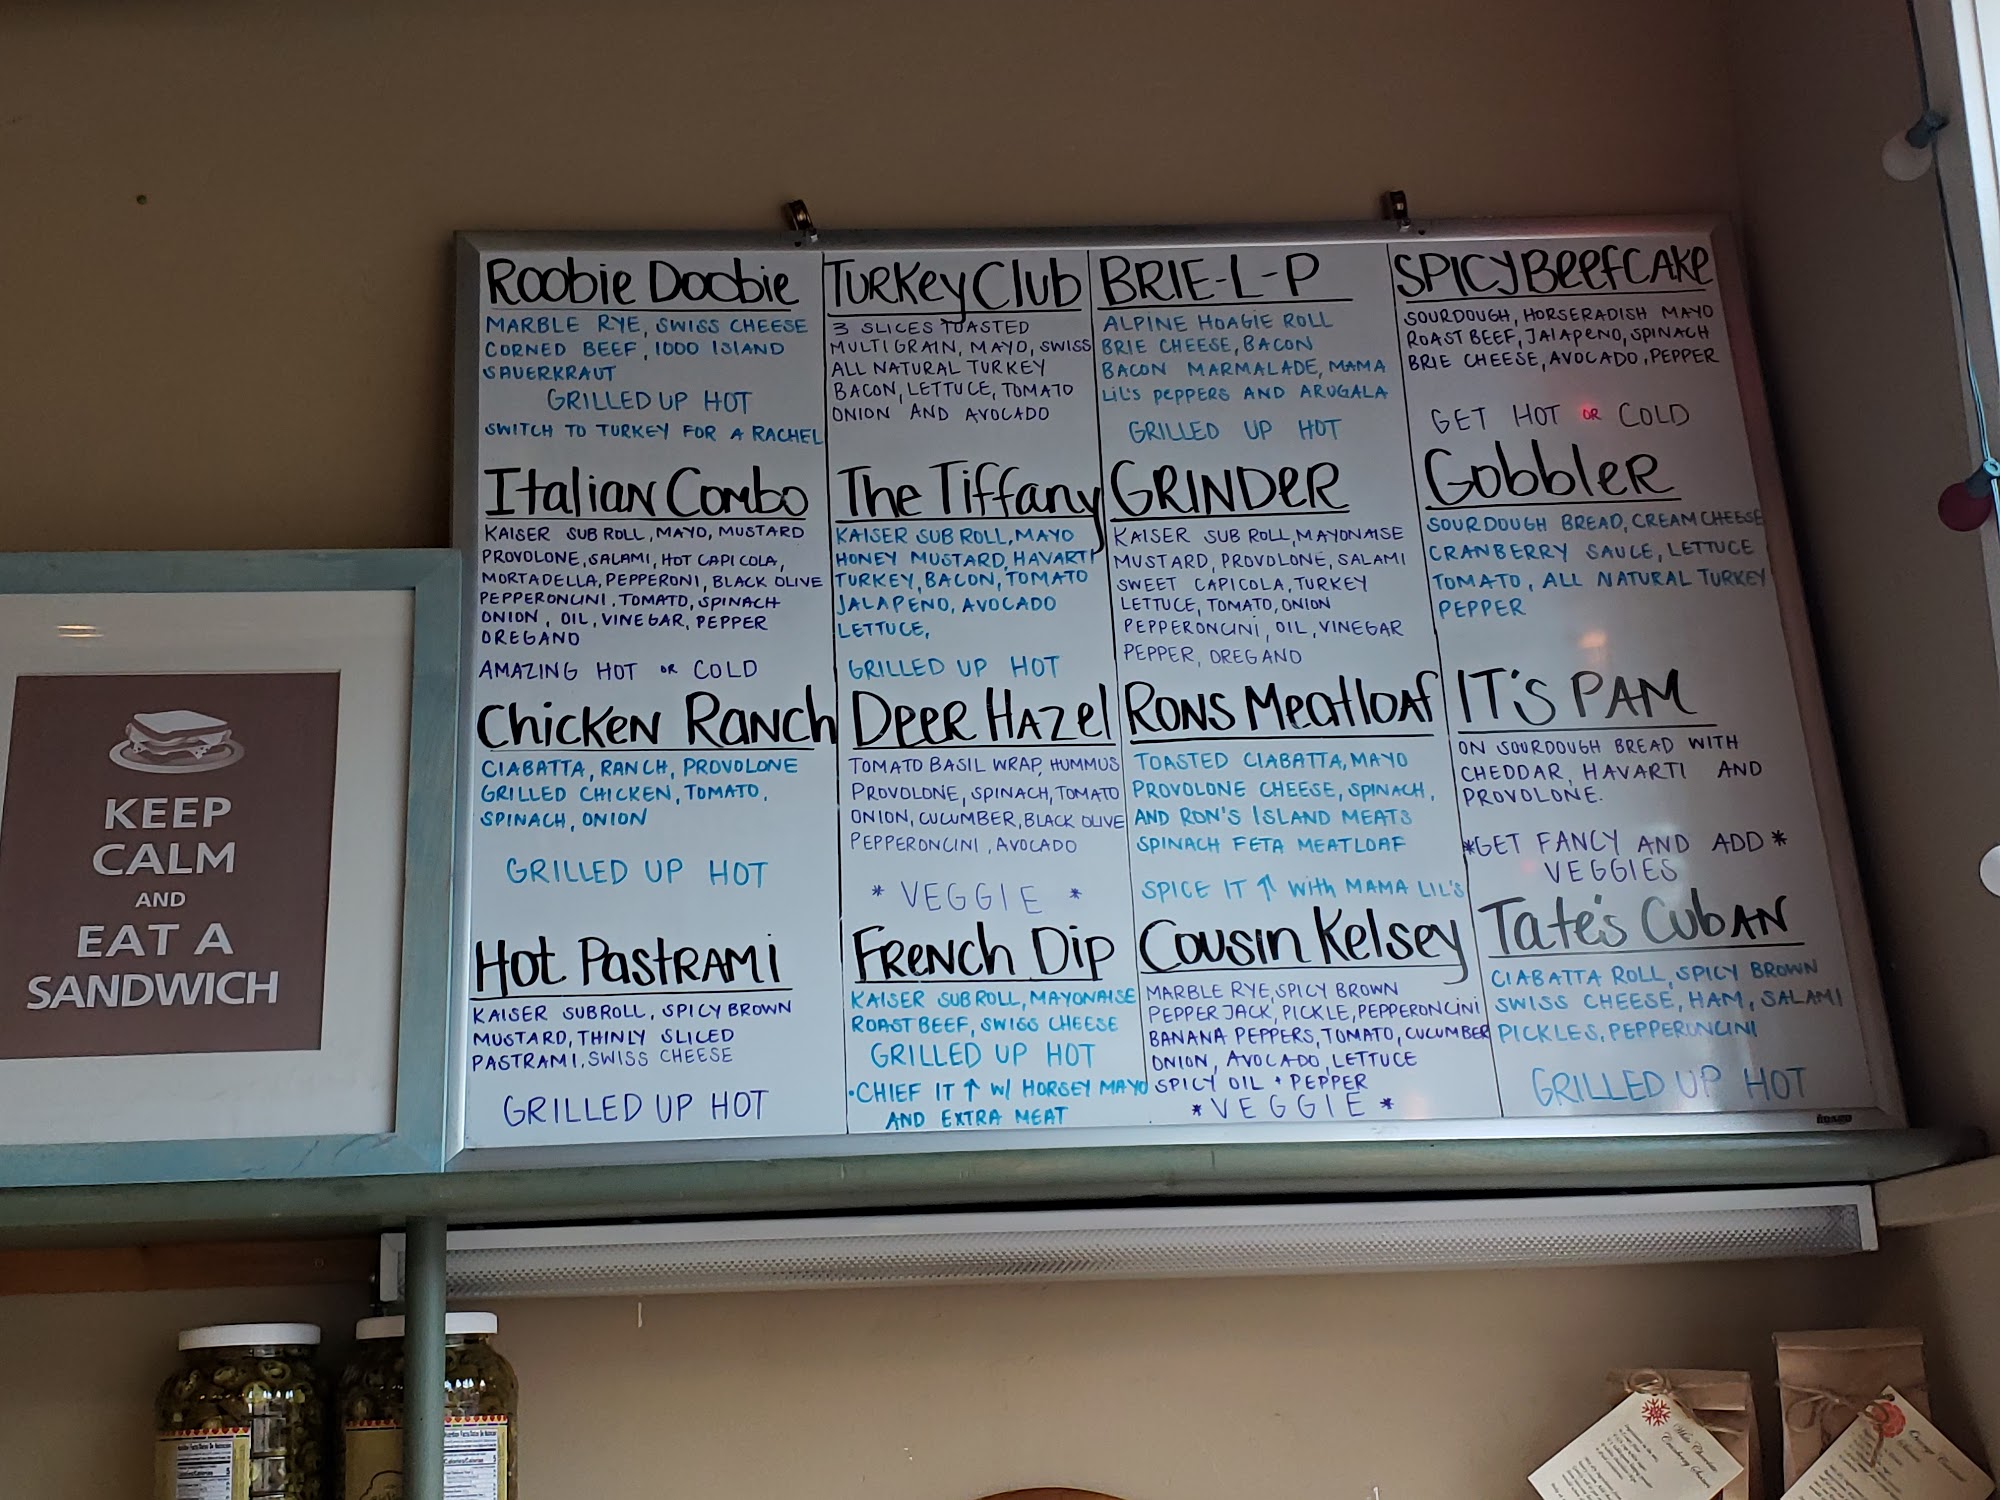 Roobie Doobie
MARBLE RYE, SWISS CHEESE
CORNED BEEF, 1000 ISLAND
SAUERKRAUT
GRILLED UP HOT
SWITCH TO TURKEY FOR A RACHEL
Turkey Club
3 SLICES TOASTED
MULTIGRAIN, MAYO, SWISS
ALL NATURAL TURKEY
BACON, LETTUCE, TOMATO
ONION AND AVOCADO
BRIE-L-P
ALPINE HOAGIE ROLL
BRIE CHEESE, BACON
BACON MARMALADE, MAMA
LIL'S PEPPERS AND ARUGALA
GRILLED UP HOT
SPICY BEEFCAKE
SOURDOUGH, HORSERADISH MAYO
ROAST BEEF, JALAPENO, SPINACH
BRIE CHEESE, AVOCADO, PEPPER
GET HOT OR COLD
Italian Combo
KAISER SUB ROLL, MAYO, MUSTARD
PROVOLONE, SALAMI, HOT CAPICOLA,
MORTADELLA, PEPPERONI, BLACK OLIVE
PEPPERONCINI, TOMATO, SPINACH
ONION, OIL, VINEGAR, PEPPER
OREGANO
AMAZING HOT OR COLD
The Tiffany
KAISER SUB ROLL, MAYO
HONEY MUSTARD, HAVARTI
TURKEY, BACON, TOMATO
JALAPENO, AVOCADO
LETTUCE,
GRILLED UP HOT
GRINDER
KAISER SUB ROLL, MAYONAISE
MUSTARD, PROVOLONE, SALAMI
SWEET CAPICOLA, TURKEY
LETTUCE, TOMATO, ONION
PEPPERONCINI, OIL, VINEGAR
PEPPER, OREGANO
Gobbler
SOURDOUGH BREAD, CREAM CHEESE
CRANBERRY SAUCE, LETTUCE
TOMATO, ALL NATURAL TURKEY
PEPPER
Chicken Ranch
CIABATTA, RANCH, PROVOLONE
GRILLED CHICKEN, TOMATO,
SPINACH, ONION
GRILLED UP HOT
Deer Hazel
TOMATO BASIL WRAP, HUMMUS
PROVOLONE, SPINACH, TOMATO
ONION, CUCUMBER, BLACK OLIVE
PEPPERONCINI, AVOCADO
* VEGGIE *
Rons Meatloaf
TOASTED CIABATTA, MAYO
PROVOLONE CHEESE, SPINACH,
AND RON'S ISLAND MEATS
SPINACH FETA MEATLOAF
SPICE IT ↑ with MAMA LIL'S
IT'S PAM
ON SOURDOUGH BREAD WITH
CHEDDAR, HAVARTI AND
PROVOLONE.
*GET FANCY AND ADD *
VEGGIES
Hot Pastrami
KAISER SUBROLL, SPICY BROWN
MUSTARD, THINLY SLICED
PASTRAMI, SWISS CHEESE
GRILLED UP HOT
French Dip
KAISER SUB ROLL, MAYONAISE
ROAST BEEF, SWISS CHEESE
GRILLED UP HOT
•CHIEF IT ↑ W/ HORSEY MAYO
AND EXTRA MEAT
Cousin Kelsey
MARBLE RYE, SPICY BROWN
PEPPER JACK, PICKLE, PEPPERONCINI
BANANA PEPPERS, TOMATO, CUCUMBER
ONION, AVOCADO, LETTUCE
SPICY OIL + PEPPER
* VEGGIE *
Tate's Cuban
CIABATTA ROLL, SPICY BROWN
SWISS CHEESE, HAM, SALAMI
PICKLES, PEPPERONCINI
GRILLED UP HOT
KEEP
CALM
AND
EAT A
SANDWICH
White Chocolate
Cranberry
Orange